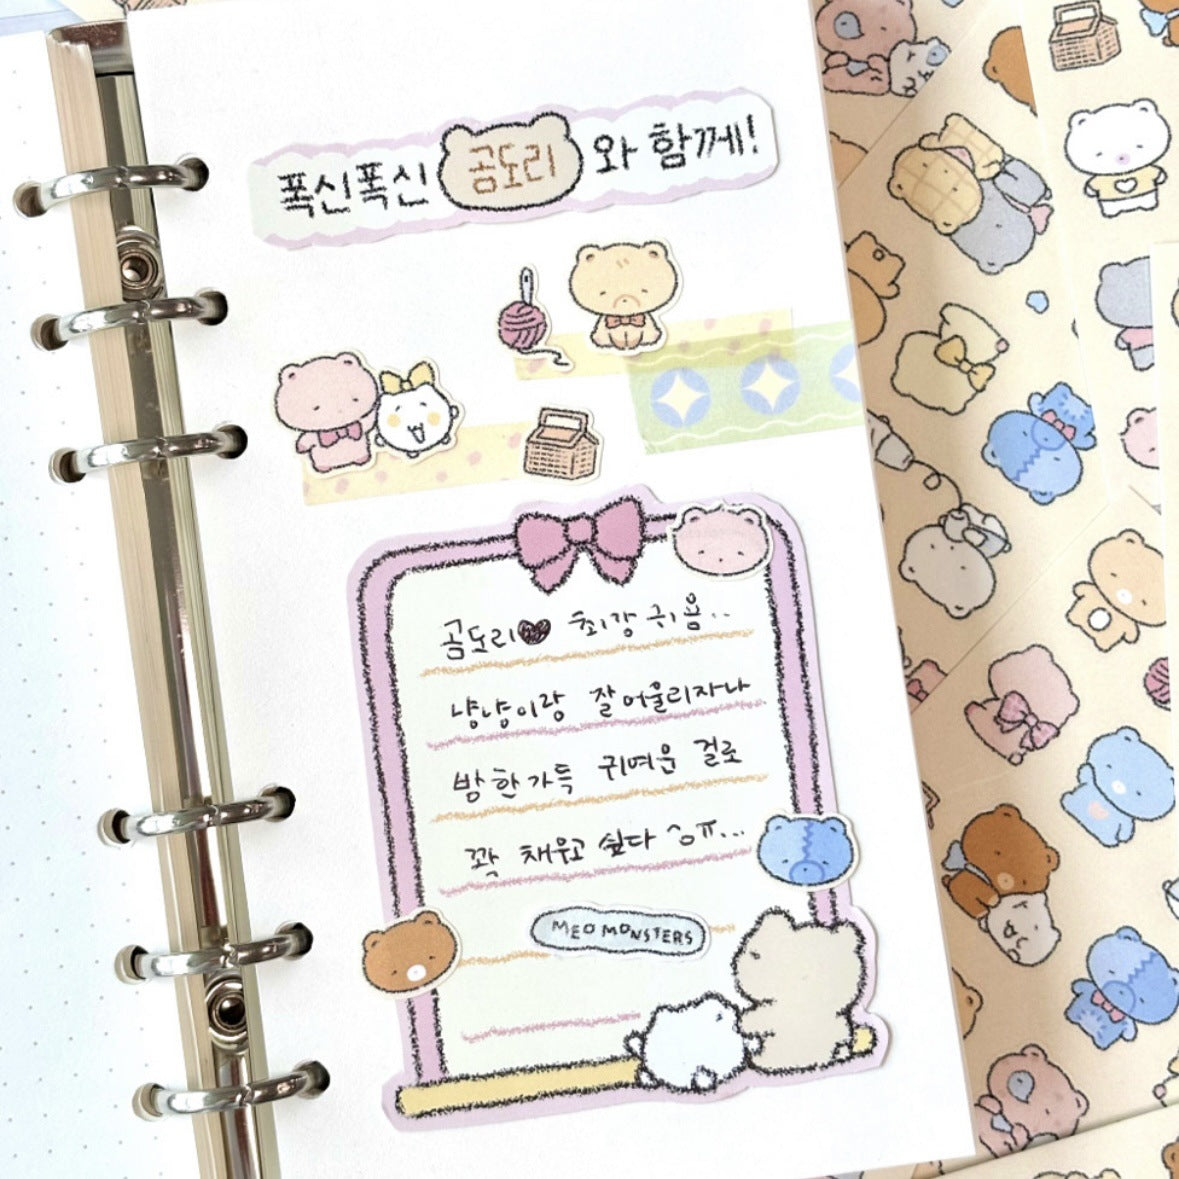 폭신폭신 곰도리와 함께!
곰도리♥ 최강 귀욤..
냥냥이랑 잘어울리자나
방 한가득 귀여운 걸로
꽉 채우고 싶다 ^ㅇㅠ...
MEOMONSTERS